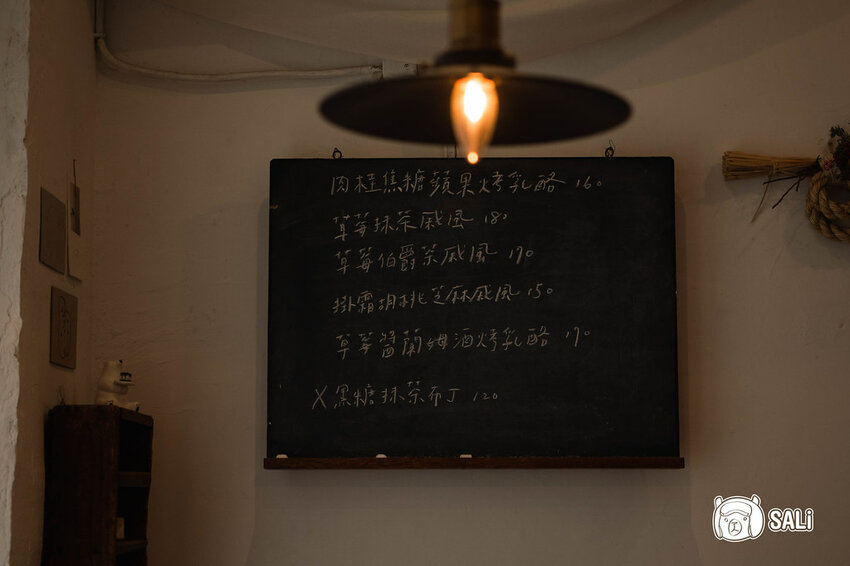 肉桂焦糖蘋果烤乳酪 160
草莓抹茶戚風 180
草莓伯爵茶戚風 170
掛霜胡桃芝麻戚風 150
草莓醬蘭姆酒烤乳酪 170
X 黑糖抹茶布丁 120
SALi